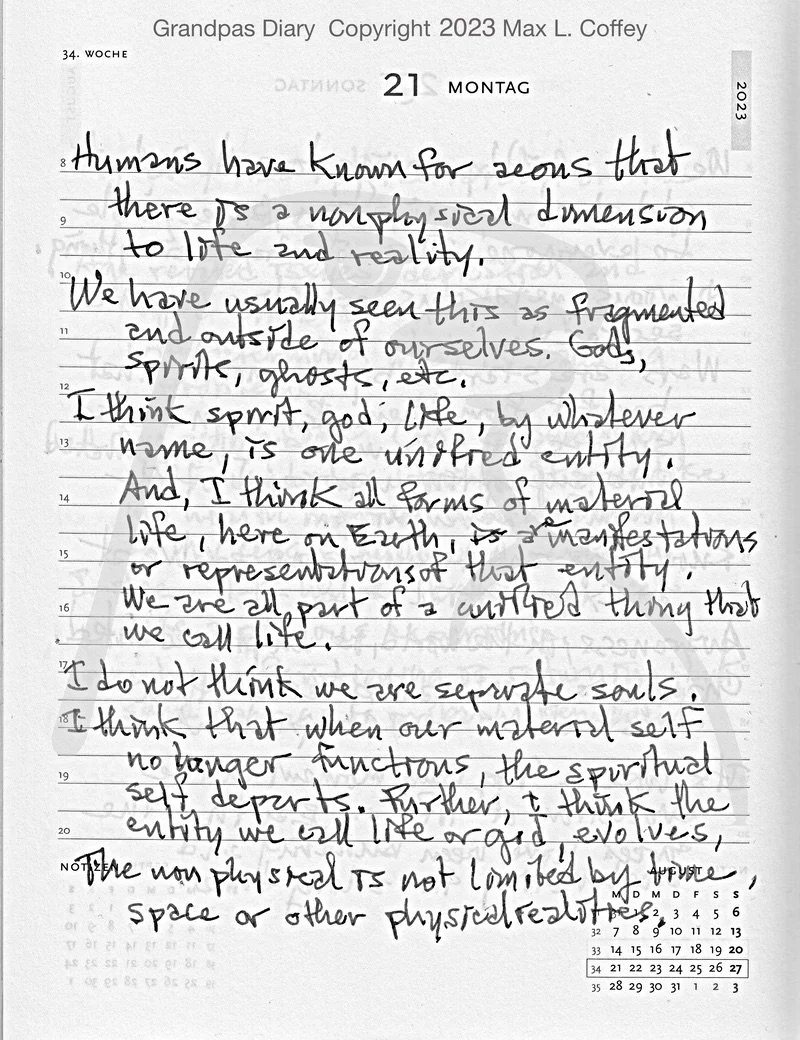 Grandpas Diary Copyright 2023 Max L. Coffey
34. WOCHE
21 MONTAG
2023
8 Humans have known for aeons that
there is a nonphysical dimension
9
to life and reality.
10 We have usually seen this as fragmented
11 and outside of ourselves. Gods,
spirits, ghosts, etc.
12
I think spirit, god, life, by whatever
13 name, is one unified entity.
14 And, I think all forms of material
life, here on Earth, is a manifestations
15 or representations of that entity.
16 We are all part of a unified thing that
we call life.
17 I do not think we are seprate souls.
18 I think that when our material self
no longer functions, the spiritual
19 self departs. Further, I think the
20 entity we call life or god, evolves,
NOTIZEN
The nonphysical is not limited by time,
space or other physical realities.
AUGUST
M D M D F S S
1 2 3 4 5 6
32 7 8 9 10 11 12 13
33 14 15 16 17 18 19 20
34 21 22 23 24 25 26 27
35 28 29 30 31 1 2 3